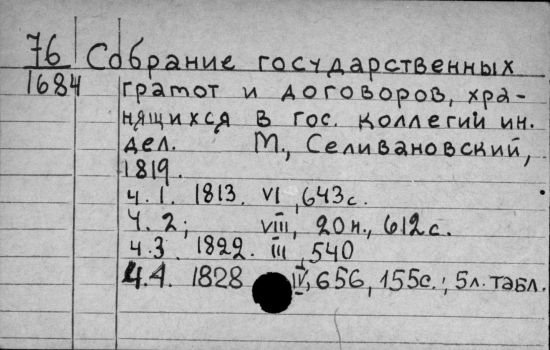 76 Собрание государственных
1684 грамот и договоров, хра-
нящихся в гос. коллегии ин.
дел. М., Селивановский,
1819.
ч. 1. 1813. VI, 643с.
ч. 2; VIII, 20н., 612с.
ч. 3. 1822. III, 540
ч. 4. 1828 IV, 656, 155с.; 5л. табл.